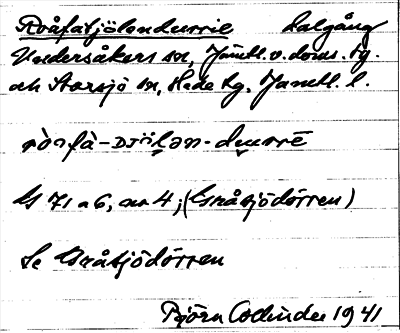 Råfatjölendurrie dalgång
Undersåkers sn, Jämtl. v. doms. tg.
och Storsjö sn, Hede tg. Jämtl. l.
ròɑfà-DJölən-durrē
G 71 a 6, nr 4; (Gråsjödörren)
Se Gråsjödörren
Björn Collinder 1941